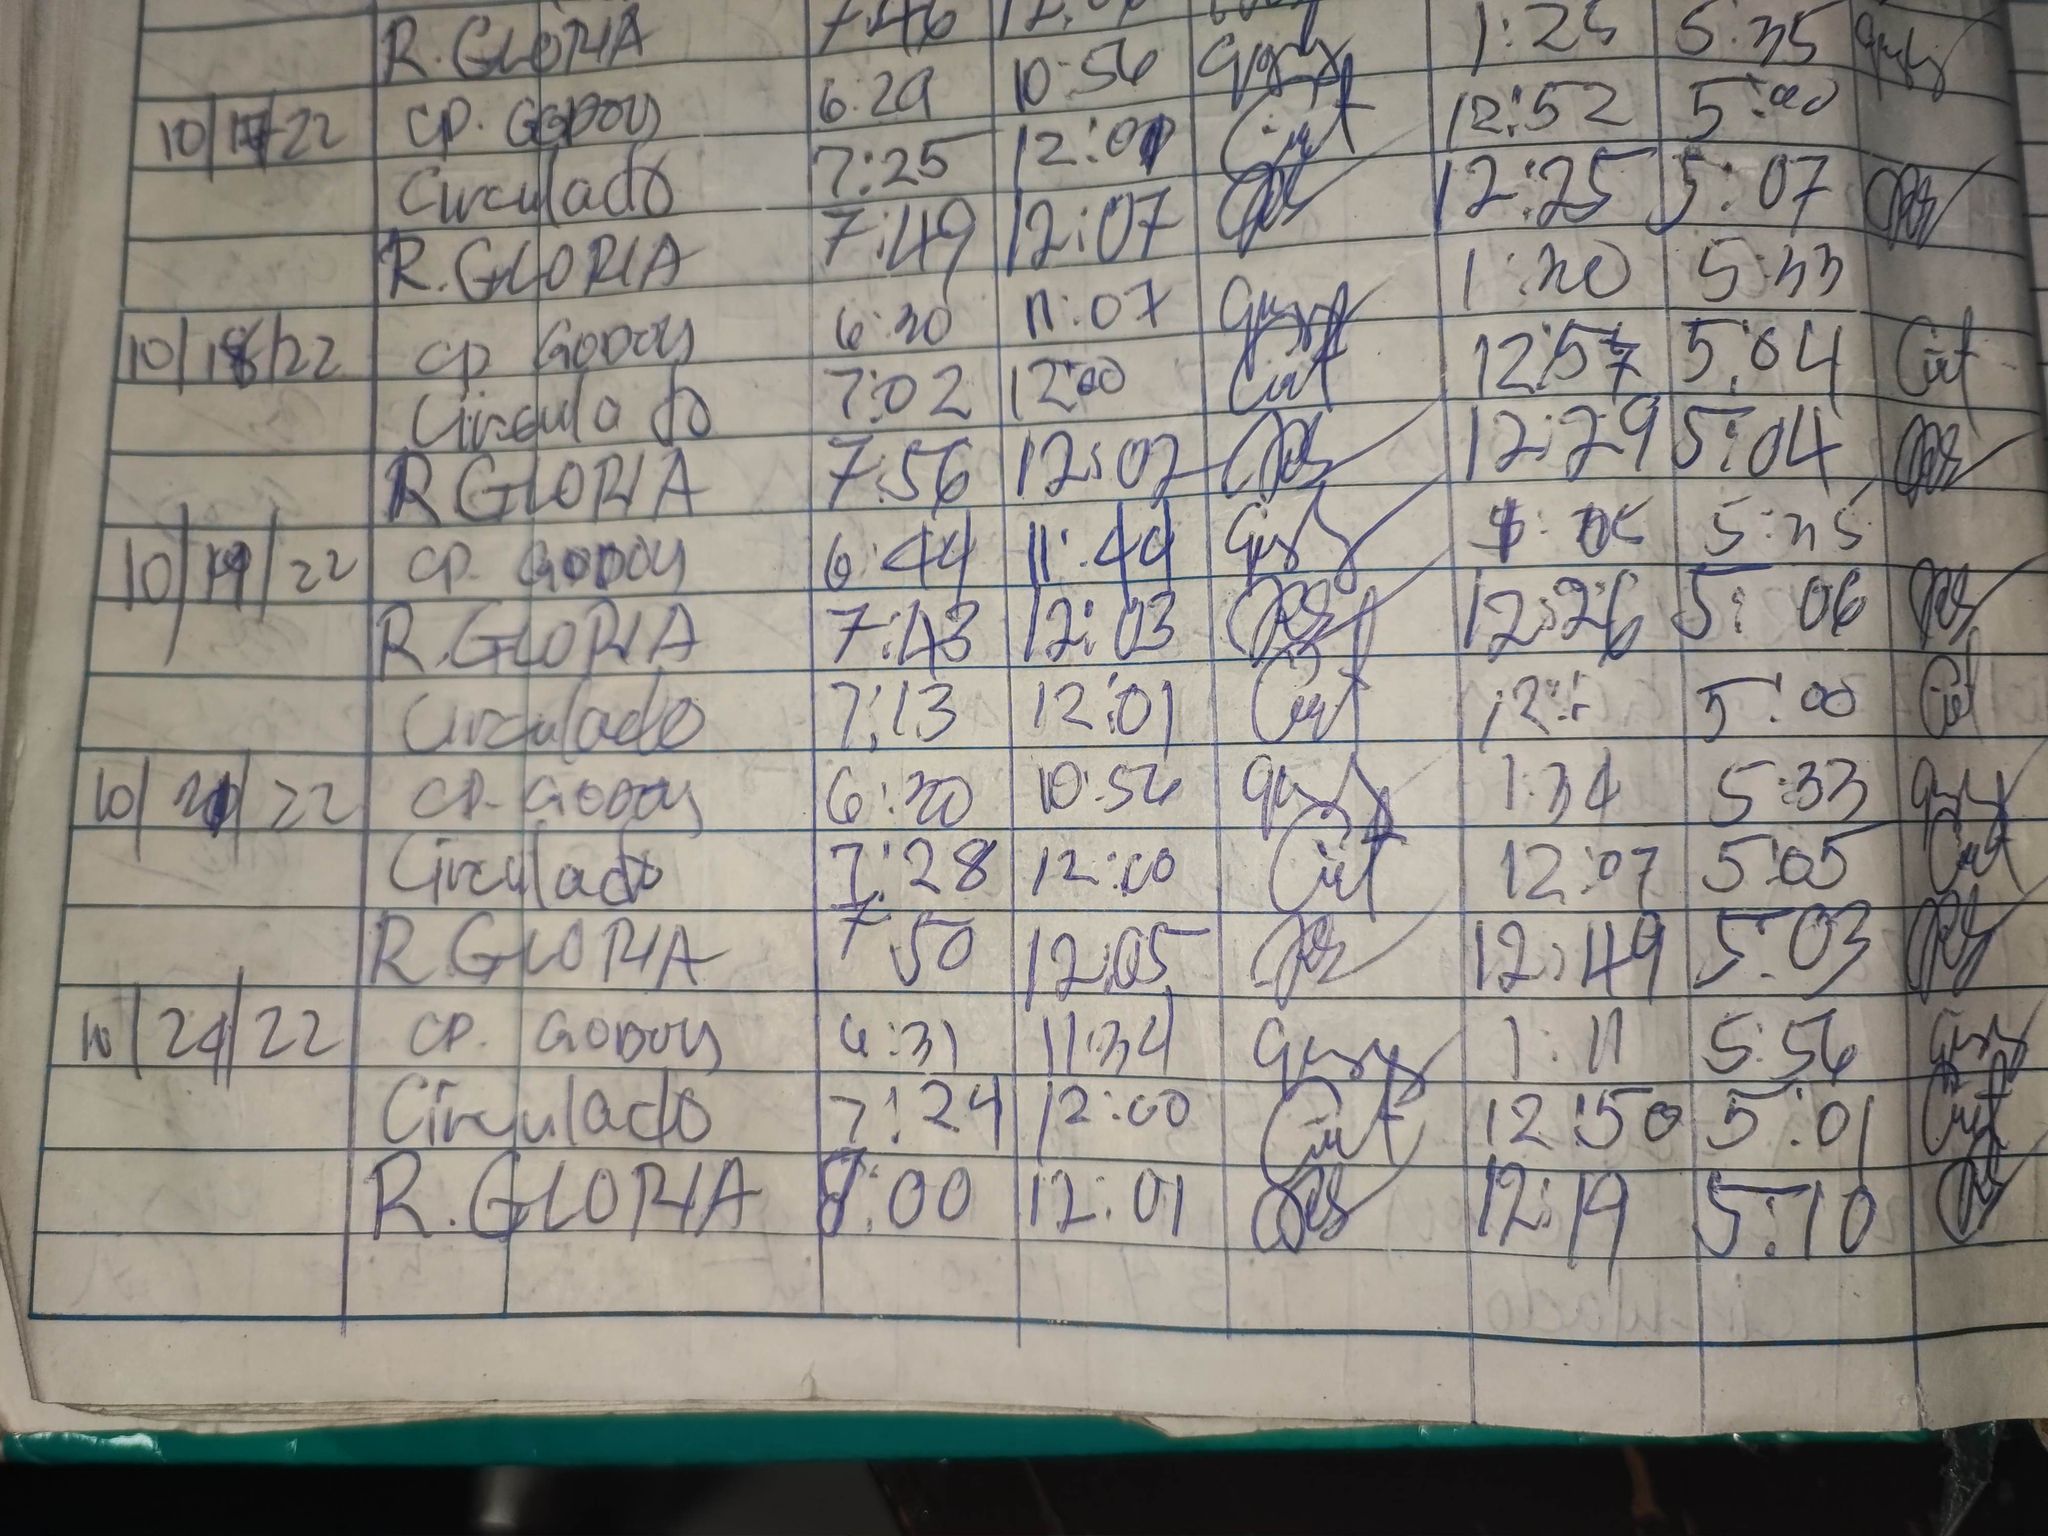 R. GLORIA 7:46 1:25 5:35
10/17/22 CP. GODOY 6:29 10:56 12:52 5:00
Circulado 7:25 12:01 12:25 5:07
R. GLORIA 7:49 12:07 1:30 5:33
10/18/22 CP GODOY 6:30 11:07 12:57 5:04
Circulado 7:02 12:00 12:29 5:04
R GLORIA 7:56 12:02 5:35
10/19/22 CP. GODOY 6:44 11:44 12:26 5:06
R. GLORIA 7:43 12:03 5:00
Circulado 7:13 12:01
10/20/22 CP. GODOY 6:30 10:56 1:34 5:33
Circulado 7:28 12:00 12:07 5:05
R GLORIA 7:50 12:05 12:49 5:03
10/24/22 CP. GODOY 6:31 11:34 1:11 5:56
Circulado 7:24 12:00 12:50 5:01
R. GLORIA 8:00 12:01 12:19 5:10